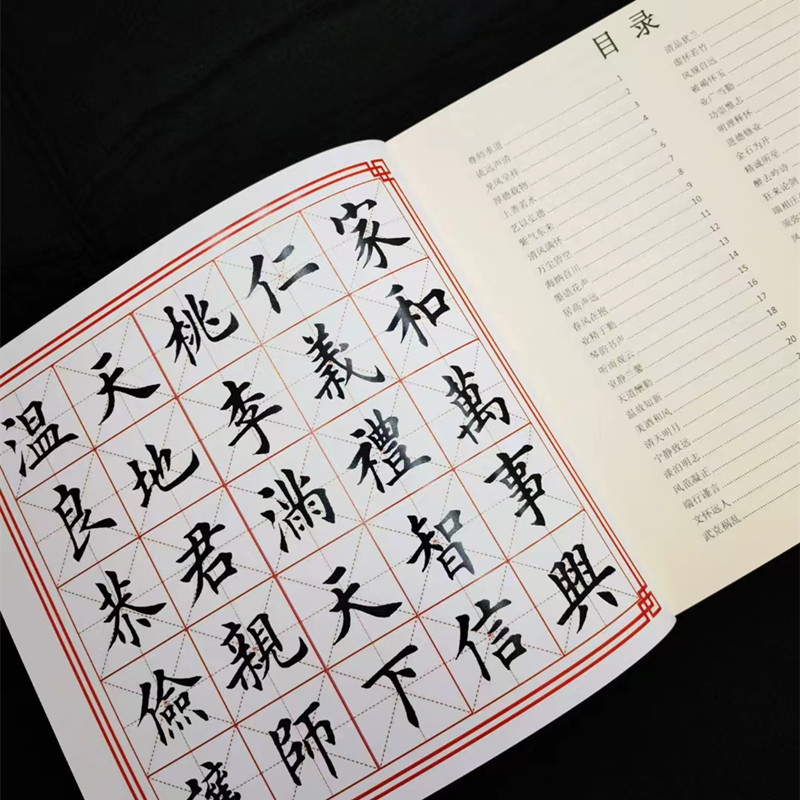 家和萬事興
仁義禮智信
桃李滿天下
天地君親師
温良恭儉
目录
尊师重道 1
流远声清 2
龙凤呈祥 3
厚德载物 4
上善若水 5
艺以弘德 6
紫气东来 7
清风满怀 8
万尘皆空 9
海纳百川 10
墨语花声 11
居高声远 12
春风在抱 13
业精于勤 14
琴韵书声 15
听雨观云 16
室静兰馨 17
天道酬勤 18
温故知新 19
美酒和风 20
清天明月
宁静致远
淡泊明志
风范凝正
端行谨言
文怀远人
武克祸乱
清品犹兰
虚怀若竹
风规自远
被褐怀玉
业广当勤
功崇惟志
明理释怀
道德稳业
金石为开
精诚所至
醉去吟诗
狂来论剑
瑞相庄